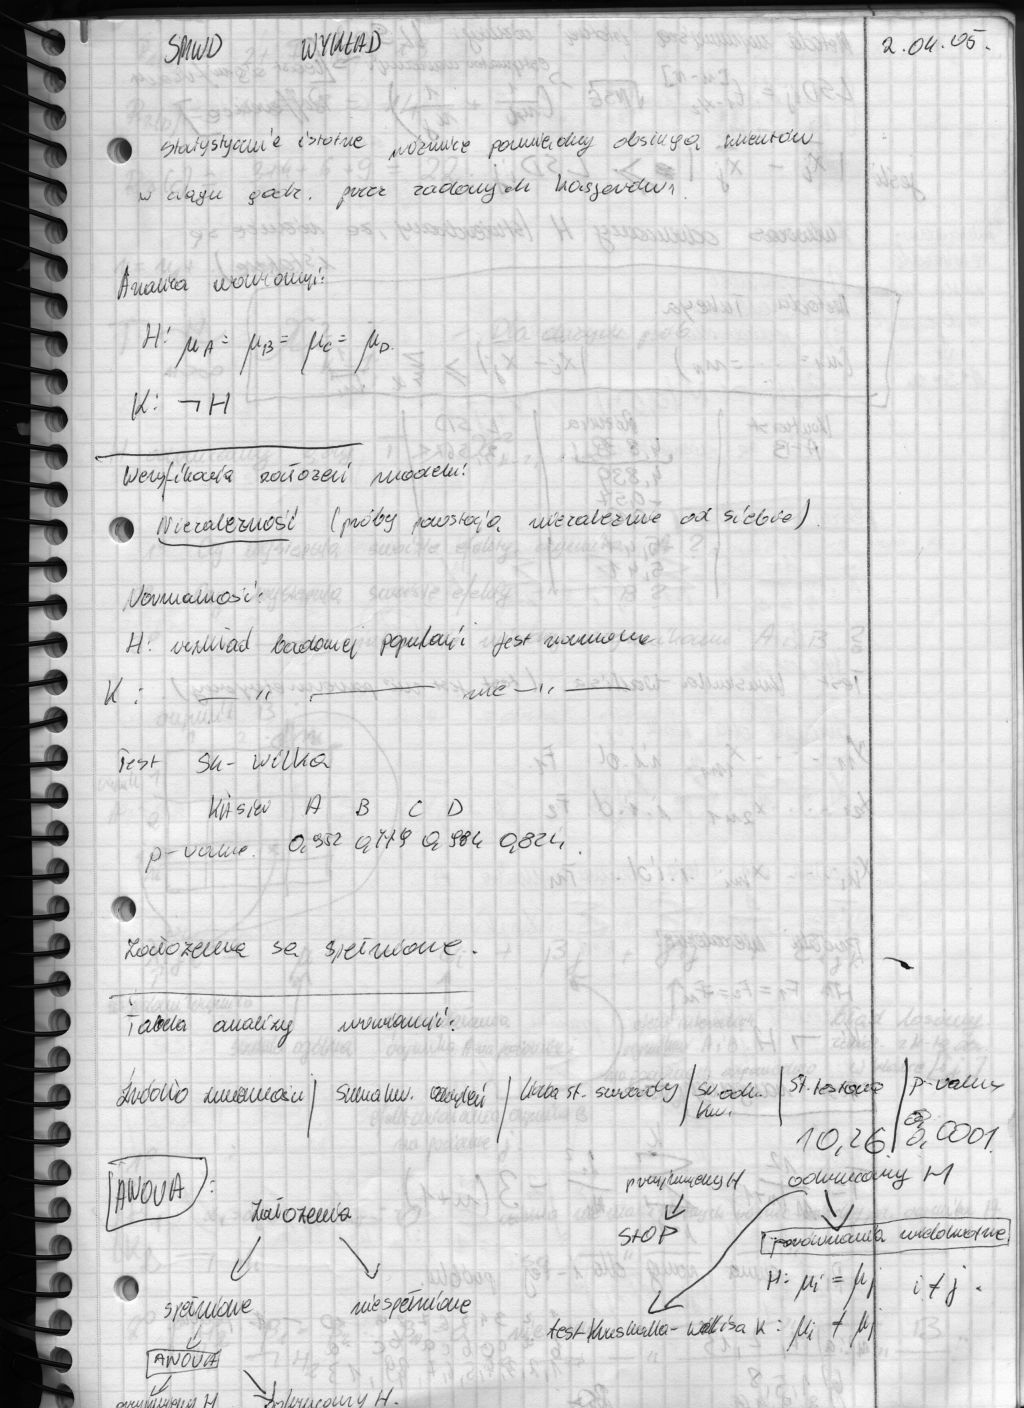 SMWD WYKŁAD 2.04.05.
statystycznie istotne różnice pomiędzy obsługą klientów
w ciągu godz. przez żadnych kasjerów.
Analiza wariancji:
H: μA = μB = μC = μD.
K: ¬H
Weryfikacja założeń modelu:
Niezależność (próby powstają niezależnie od siebie).
Normalność:
H: rozkład badanej populacji jest normalny
K: —— ,, —— nie —,,—
Test Sh-Wilka
Kasjer A B C D
p-value. 0,952 0,779 0,984 0,824.
Założenia są spełnione.
Tabela analizy wariancji:
Źródło zmienności | Suma kw. odchyleń | liczba st. swobody | Śr. odch. kw. | St. testowa | p-value
10,26 | 0,0001
ANOVA: przyjmujemy H odrzucamy H
Założenia
STOP porównania wielokrotne
H: μi = μj i ≠ j.
spełnione niespełnione
test Kruskalla-Wallisa K: μi ≠ μj
ANOVA
przyjmujemy H odrzucamy H.